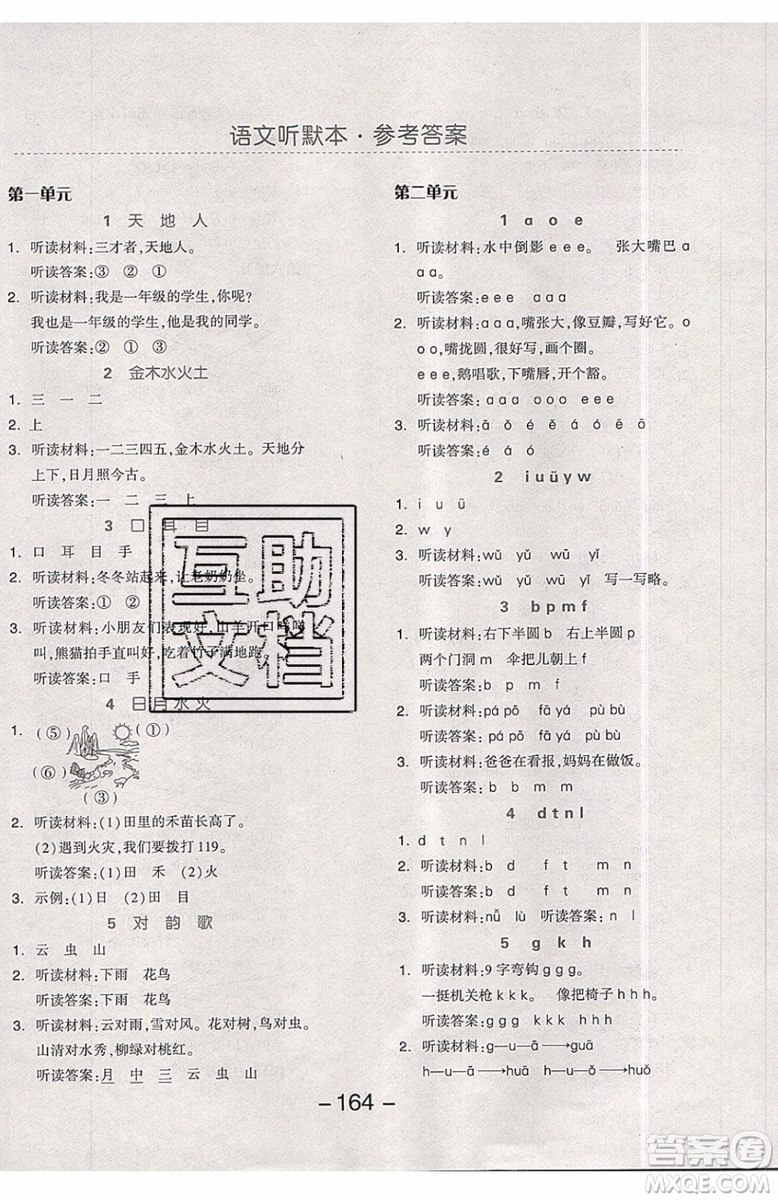 语文听默本·参考答案
第一单元
1 天地人
1. 听读材料:三才者,天地人。
听读答案:③ ② ①
2. 听读材料:我是一年级的学生,你呢?
我也是一年级的学生,他是我的同学。
听读答案:② ① ③
2 金木水火土
1. 三 一 二
2. 上
3. 听读材料:一二三四五,金木水火土。天地分
上下,日月照今古。
听读答案:一 二 三 上
3 口耳目
1. 口 耳 目 手
2. 听读材料:冬冬站起来,让老奶奶坐。
听读答案:② ①
3. 听读材料:小朋友们表现好,山羊开口咩咩
叫,熊猫拍手直叫好,吃着竹子满地跑。
听读答案:口 手
4 日月水火
1. (⑤) (①)
(⑥)
(③)
2. 听读材料:(1)田里的禾苗长高了。
(2)遇到火灾,我们要拨打 119。
听读答案:(1)田 禾 (2)火
3. 示例:(1)日 田 目
5 对韵歌
1. 云 虫 山
2. 听读材料:下雨 花鸟
听读答案:下雨 花鸟
3. 听读材料:云对雨,雪对风。花对树,鸟对虫。
山清对水秀,柳绿对桃红。
听读答案:月 中 三 云 虫 山
第二单元
1 a o e
1. 听读材料:水中倒影 e e e。 张大嘴巴 a
a a。
听读答案:e e e a a a
2. 听读材料:a a a,嘴张大,像豆瓣,写好它。o
o o,嘴拢圆,很好写,画个圈。
e e e,鹅唱歌,下嘴唇,开个豁。
听读答案:a a a o o o e e e
3. 听读材料:ā é á ó ō ē ō
听读答案:é á ó
2 i u ü y w
1. i u ü
2. w y
3. 听读材料:wǔ yǔ wū yǐ
听读答案:wǔ yǔ wū yǐ 写一写略。
3 b p m f
1. 听读材料:右下半圆 b 右上半圆 p
两个门洞 m 伞把儿朝上 f
听读答案:b p m f
2. 听读材料:pá pō fā yá pù bù
听读答案:pá pō fā yá pù bù
3. 听读材料:爸爸在看报,妈妈在做饭。
听读答案:b b m f
4 d t n l
1. d t n l
2. 听读材料:b d f t m n
听读答案:b d f t m n
3. 听读材料:nǚ lù 听读答案:nǚ lù
5 g k h
1. 听读材料:9 字弯钩 g g g。
一挺机关枪 k k k。 像把椅子 h h h。
听读答案:g g g k k k h h h
2. 听读材料:g—u—ā→guā
h—u—ā→huā h—u—ǒ→huǒ
- 164 -
互助
文档
答案圈
MXQE.COM